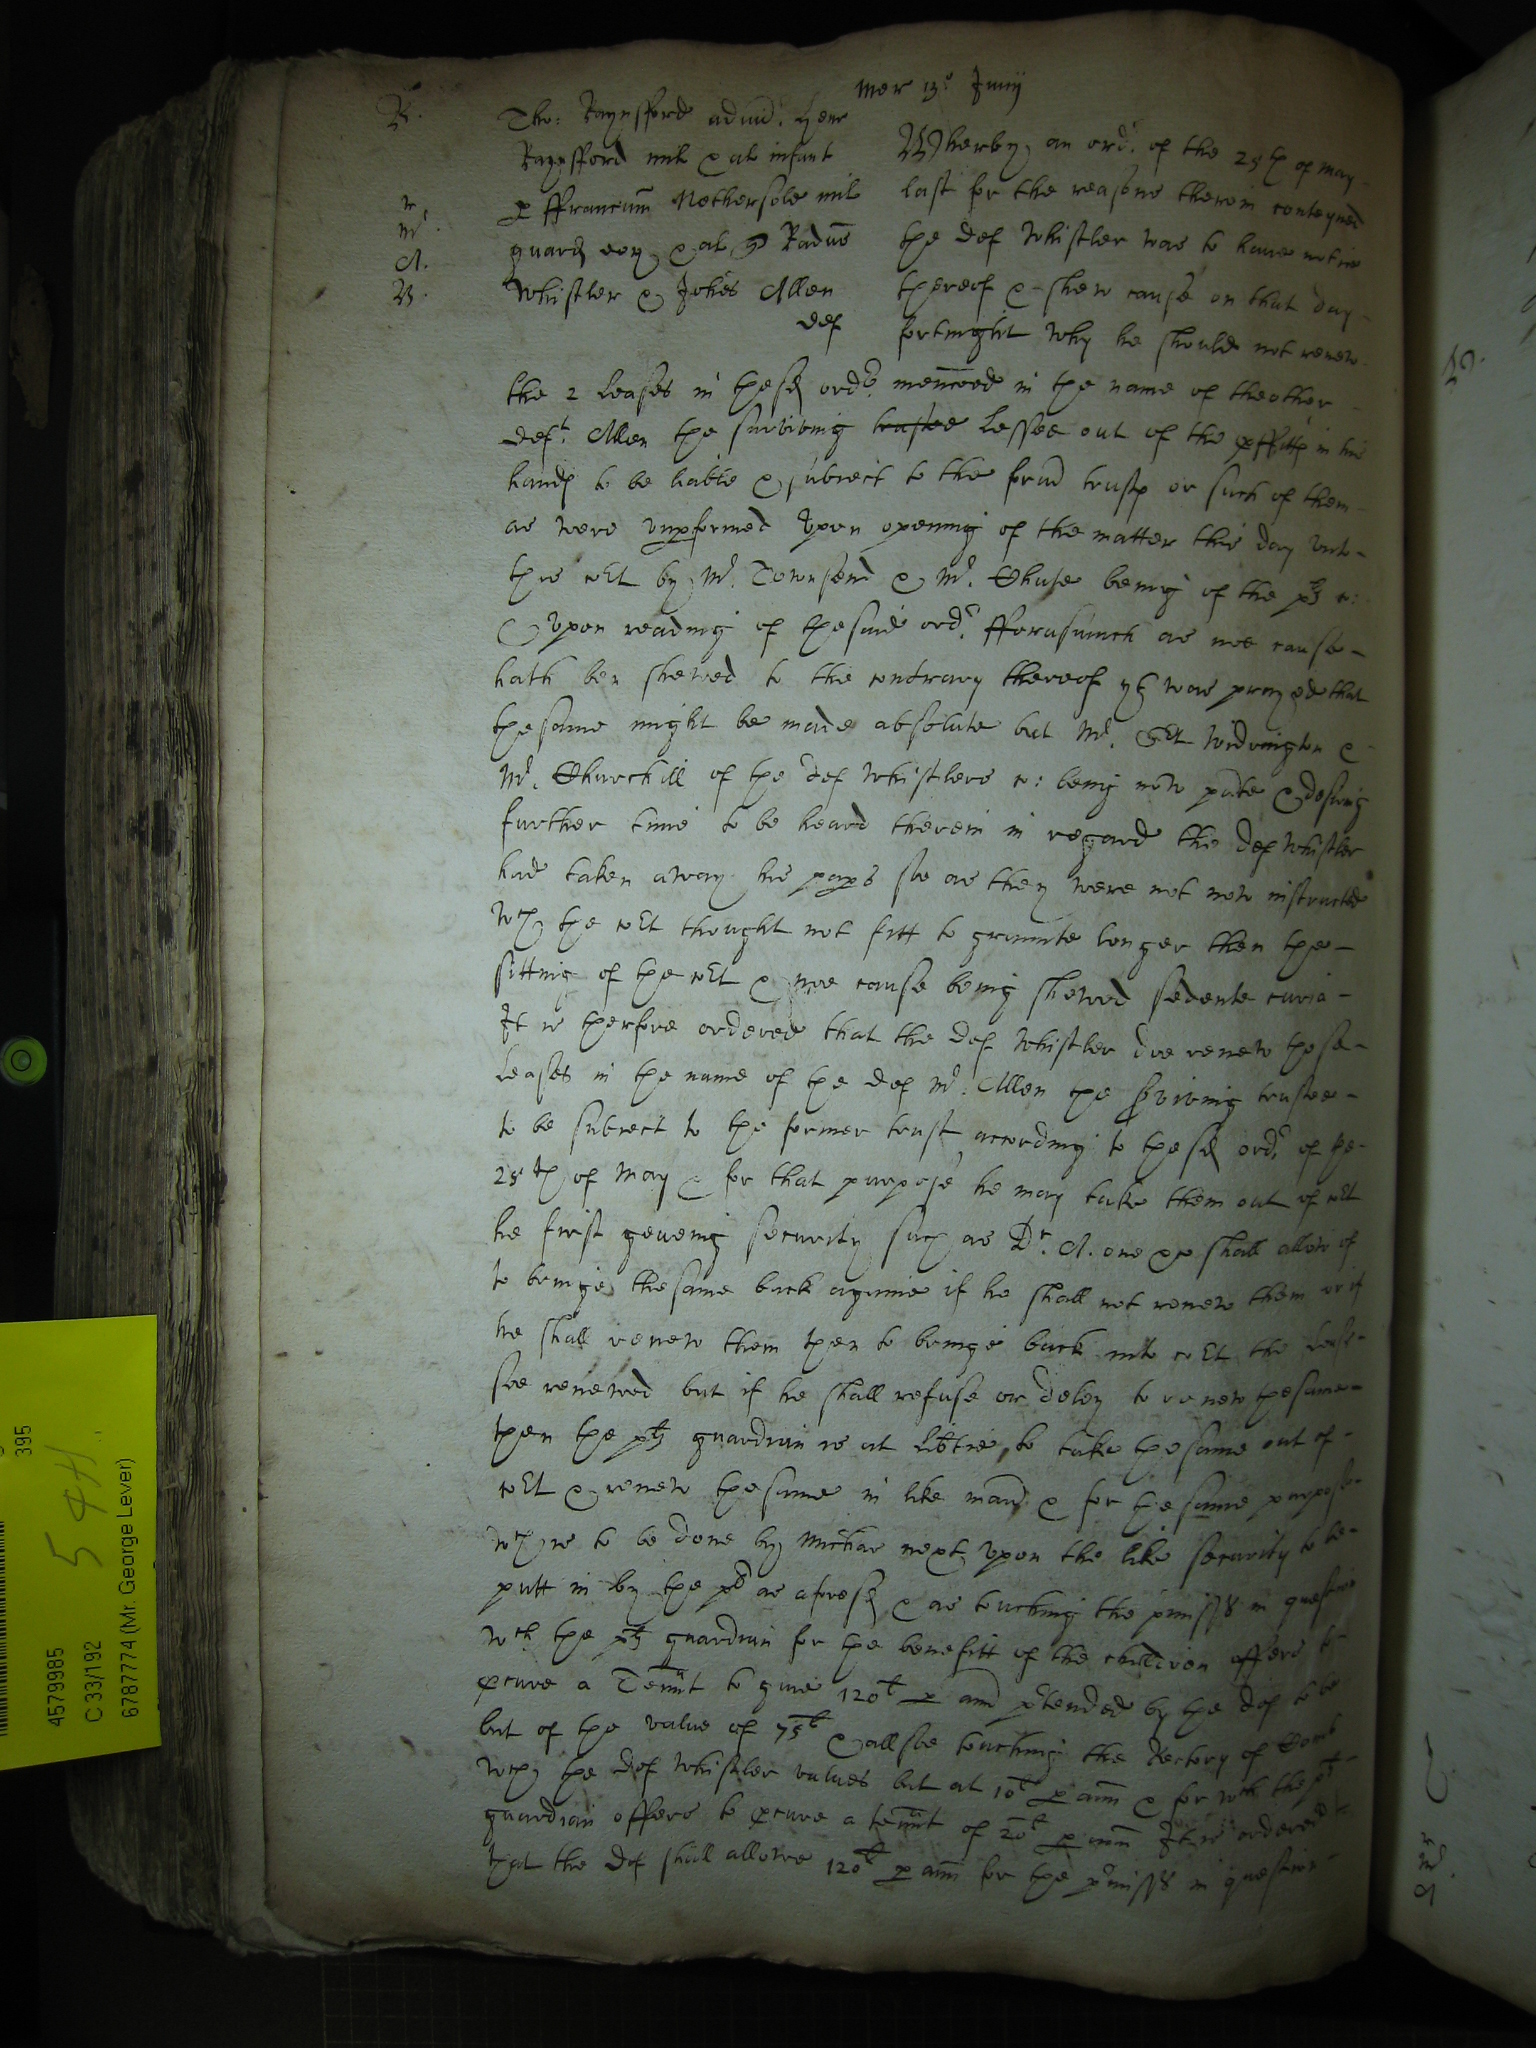 Mer 13o Junij
R.
Tho: Raynsford
Raynsford mil & al infant
p ffranciscum Nethersole mil
guard eor & al q Radūs
Whistler & Johēs Allen
def
r
Mr.
A.
W.
Wherby an ordr. of the 25th of May
last for the reasons therein conteyned
the def Whistler was to have notice
thereof & shew cause on that day
fortnight why he should not renew
the 2 leases in the sd ordr. mencōed in the name of the other
deft. Allen the surviving trustee lessee out of the pffitts in his
hands to be liable & subiect to the form trusts or such of them
as were unpformed Upon opening of the matter this day unto
this cot by Mr. Townsend & Mr. Chute being of the plts c:
& Upon reading of the said ordr. fforasmuch as noe cause
hath ben shewed to the contrary thereof yt was prayed that
the same might be made absolute but Mr. St Widrington &
Mr. Churchill of the def Whistlers c: being now pnte & desiring
further time to be heard therein in regard the def Whistler
had taken away his paps soe as they were not now instructed
wch the cot thought not fitt to graunte longer then the
sitting of the cot & noe cause being shewed sedente curia
It is therfore ordered that the def Whistler doe renew those
leases in the name of the def Mr. Allen the Surviving trustee
to be subiect to the former trust according to the sd ordr. of the
25th of May & for that purpose he may take them out of cot
he first geveing security such as Dr. A. one &c shall allow of
to bringe the same back againe if he shall not renew them or if
he shall renew them then to bringe back into cot the lease
soe renewed but if he shall refuse or deley to renew the same
then the plts guardian is at libtie to take the same out of
cot & renew the same in like mann & for the same purpose
wch is to be done by Michas next upon the like security to be
putt in by the plt as aforesd & as touching the pmisss in question
wch the plts guardian for the benefitt of the children offers to
pcure a Tennt to give 120l p ann ptended by the def to be
but of the value of 75l & allsoe touching the Rectory of
wch the def Whistler values but at 10l p ann & for wch the plts
guardian offers to pcure a tennt of 20l p ann It is ordered
that the def shall allowe 120l p ann for the pmisss in question
4579985
C 33/192
6787774 (Mr. George Lever)
395